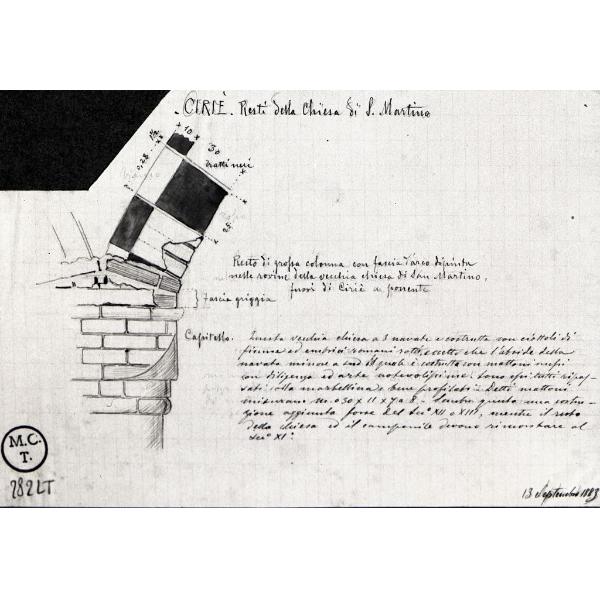 CIRIÈ. Resti della Chiesa di S. Martino
10
30
0,28
tratti neri
28
Resto di grossa colonna con fascia d'arco dipinta
nelle rovine della vecchia chiesa di San Martino,
fuori di Ciriè a ponente
fascia griggia
Capitello.
Questa vecchia chiesa a 3 navate è costrutta con ciottoli di
fiume ed embrici romani rotti, eccetto che l'abside della
navata minore a sud il quale è costrutta con mattoni
con diligenza ed arte notevolissime. Sono essi tutti ripas-
sati alla martellina e bene profilati. Detti mattoni
misurano m. 0 30 x 11 x 7 a 8. - Sembra questa una costru-
zione aggiunta forse del Sec° XII o XIII, mentre il resto
della chiesa ed il campanile devono rimontare al
Sec° XI°.
M.C.
T.
282LT
13 Settembre 1883